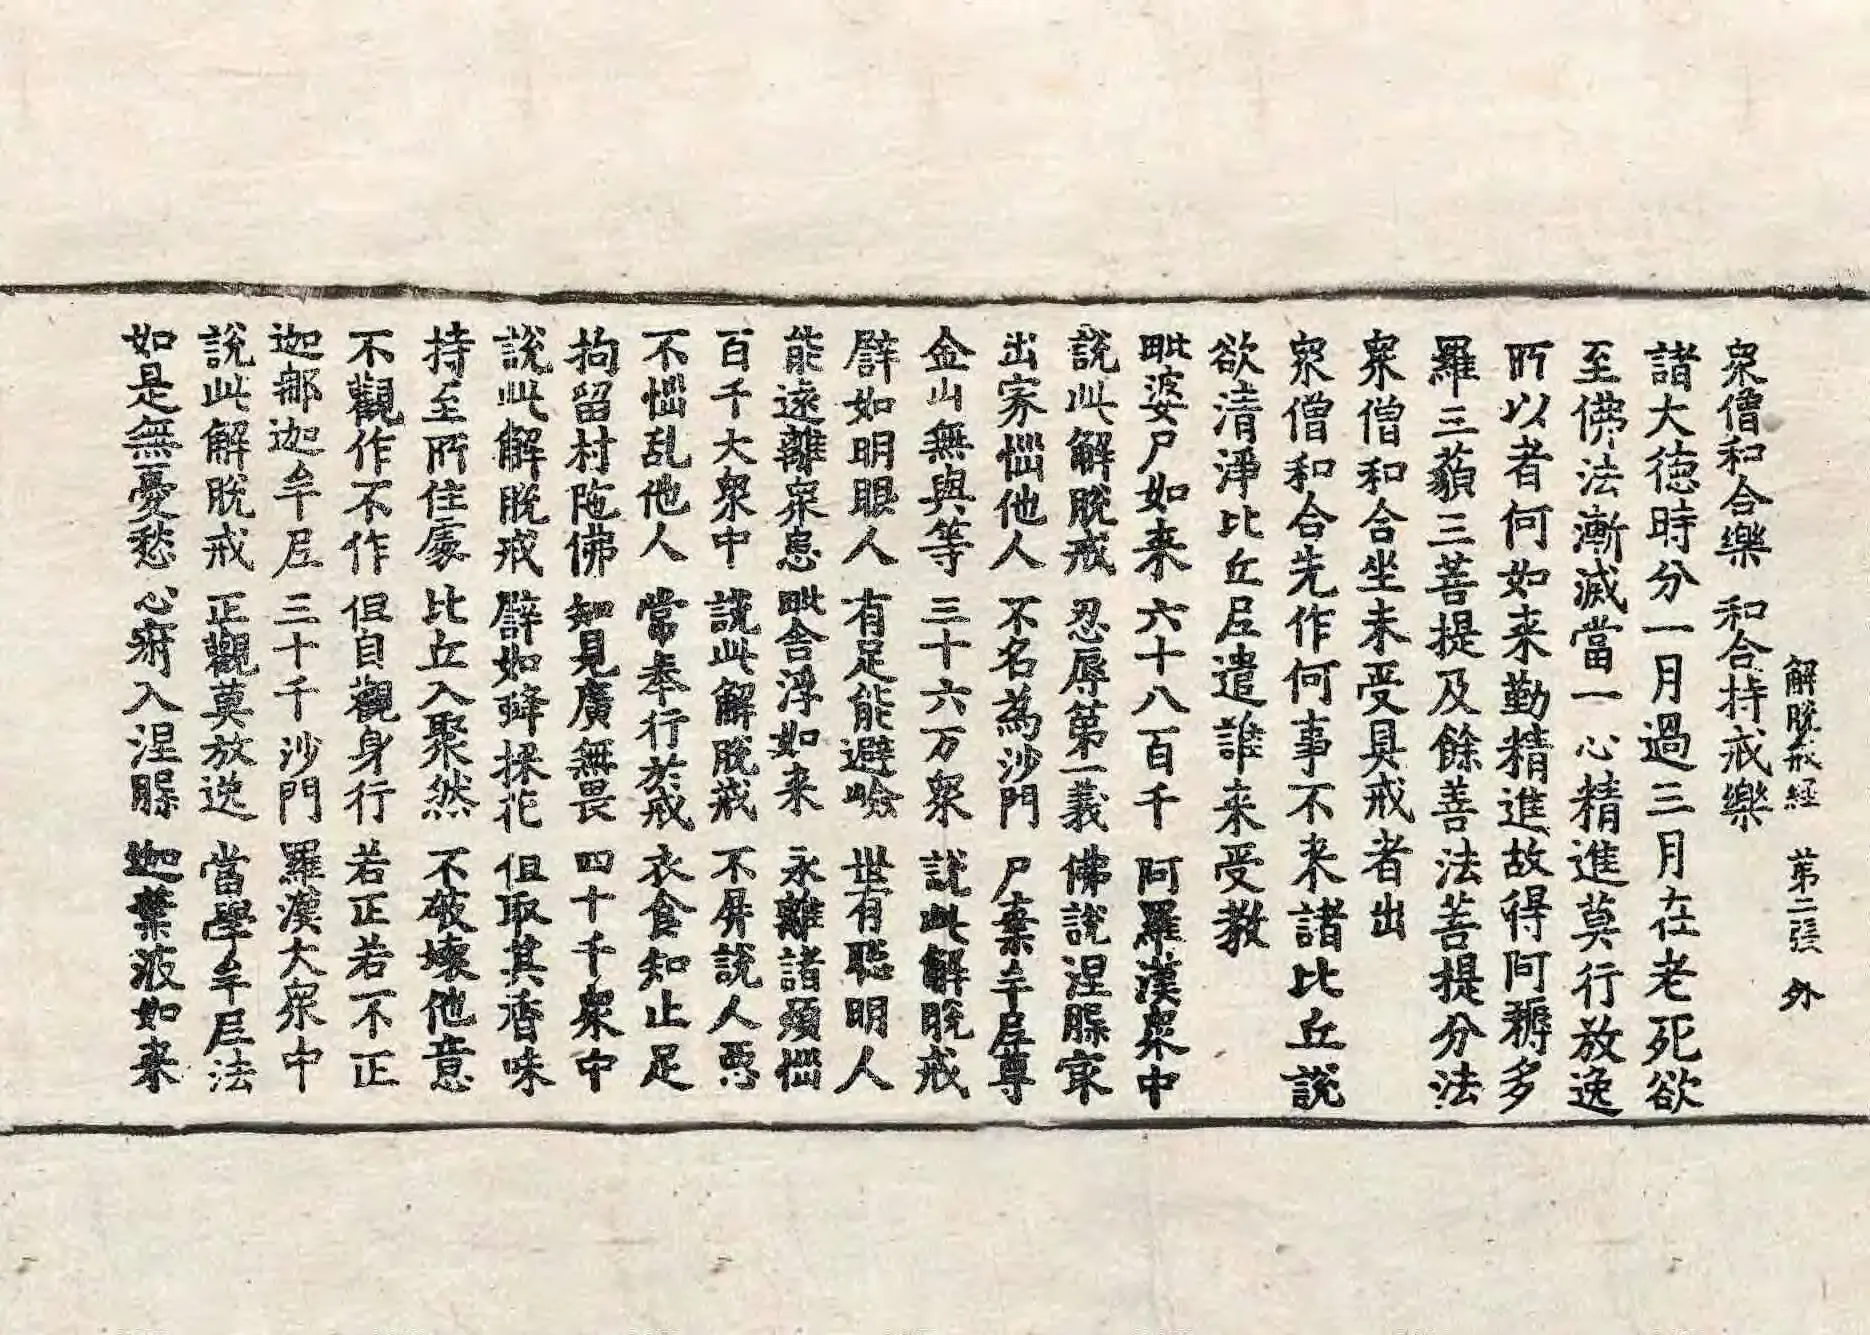 解脫戒經 第二張 外
衆僧和合樂 和合持戒樂
諸大德時分一月過三月在老死欲
至佛法漸滅當一心精進莫行放逸
所以者何如来勤精進故得阿耨多
羅三藐三菩提及餘善法菩提分法
衆僧和合坐未受具戒者出
衆僧和合先作何事不来諸比丘說
欲清淨比丘尼遣誰来受教
毗婆尸如来 六十八百千 阿羅漢衆中
說此解脫戒 忍辱第一義 佛說涅槃寂
出家惱他人 不名爲沙門 尸棄牟尼尊
金山無與等 三十六万衆 說此解脫戒
譬如明眼人 有足能避嶮 世有聡明人
能遠離衆患 毗舍浮如来 永離諸煩惱
百千大衆中 說此解脫戒 不屏說人惡
不惱乱他人 當奉行於戒 衣食知止足
拘留村陁佛 知見廣無畏 四十千衆中
說此解脫戒 譬如蜂採花 但取其香味
持至所住處 比丘入聚然 不破壞他意
不觀作不作 但自觀身行 若正若不正
迦那迦牟尼 三十千沙門 羅漢大衆中
說此解脫戒 正觀莫放逸 當學牟尼法
如是無憂愁 心寂入涅槃 迦葉波如来